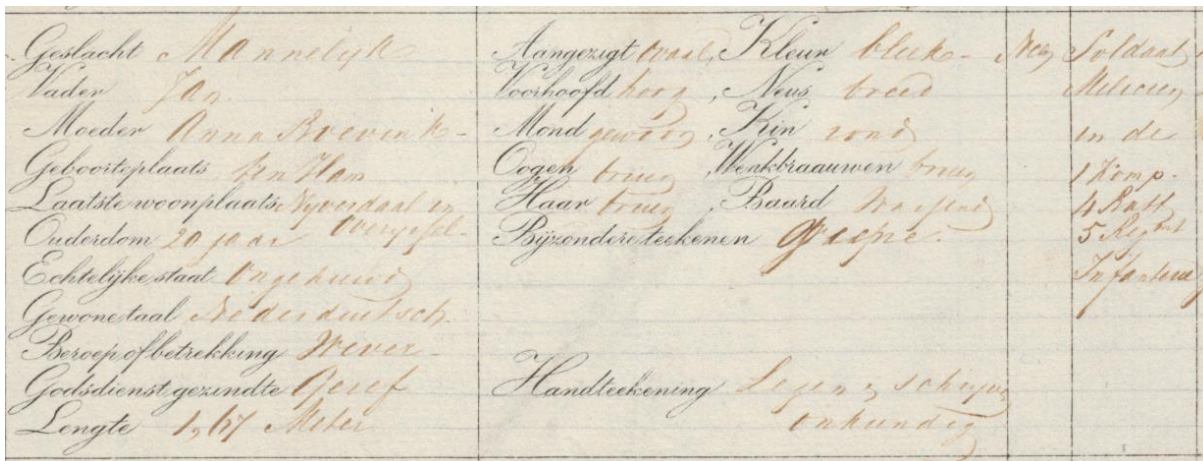 Geslacht Mannelijk
Vader Jan
Moeder Anna Brevink
Geboorteplaats ten Ham
Laatste woonplaats Nijverdaal in
Ouderdom 20 jaar Overijsel.
Echtelijke staat Ongehuwd
Gewone taal Nederduitsch.
Beroep of betrekking Wever
Godsdienst gezindte Geref
Lengte 1,67 Meter
Aangezigt Ovaal, Kleur bleek
Voorhoofd hoog, Neus breed
Mond gewoon, Kin rond
Oogen bruin, Wenkbraauwen bruin
Haar bruin, Baard
Bijzondere teekenen Geene.
Handteekening Lezen & schrijven
onkundig
Neen
Soldaat
Milicien
in de
1 Komp.
4 Batt
5 Regmt
Infanterie